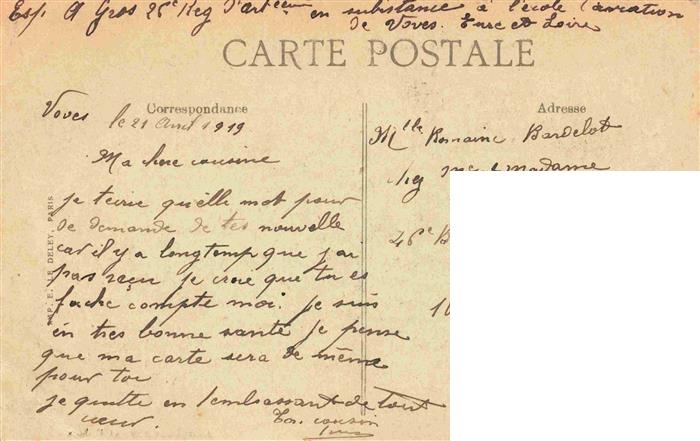 Exp A Gros 26e Reg d'art en substance à l'école d'aviation
de Voves. Eure et Loire
CARTE POSTALE
Correspondance
Voves le 21 Avril 1919
Ma chere cousine
je t'ecrie quelle mot pour
de demande de tes nouvelle
car il y a longtemp que j'ai
pas reçu je croie que tu es
fache compte moi. je suis
en tres bonne santé je pense
que ma carte sera de même
pour toi
je quitte en t'embrassant de tout
coeur. Ton cousin
IMP. E. LE DELEY, PARIS
Adresse
Mlle Romaine Bardelot
chez madame